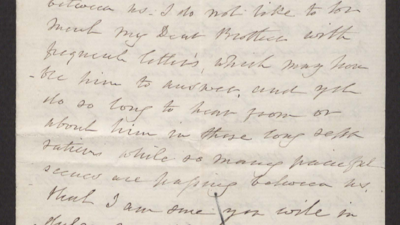 between us. I do not like to tor
ment my Dear Brother with
frequent letters, which may trou
ble him to answer, and yet
do so long to hear from or
about him in these long sepa
rations while so many painful
scenes are passing between us.
that I am sure you will in